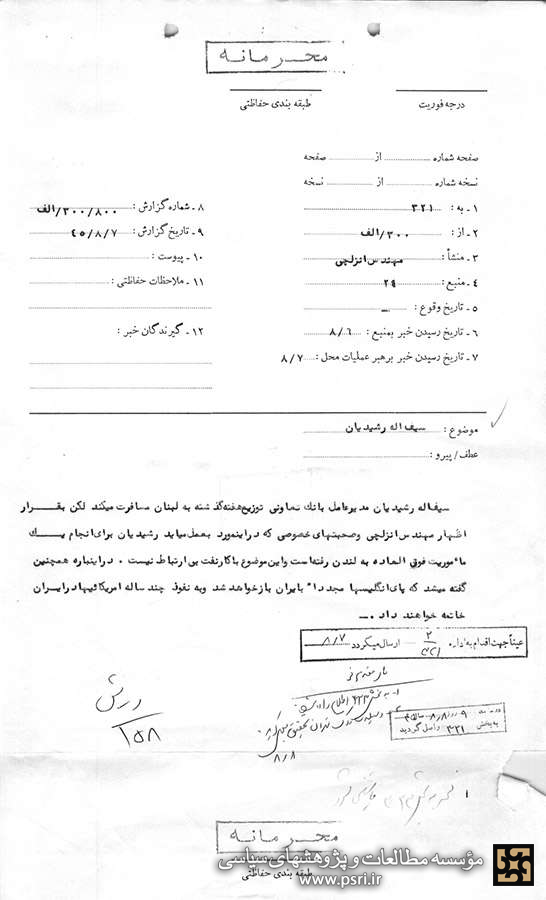 محرمانه
طبقه بندی حفاظتی
درجه فوریت
صفحه شماره ........ از ........ صفحه
نسخه شماره ........ از ........ نسخه
۱ - به : ۳۲۱
۲ - از : ۳۰۰/الف
۳ - منشأ : مهندس انزلچی
۴ - منبع : ۲۴
۵ - تاریخ وقوع : ــ
۶ - تاریخ رسیدن خبر بمنبع : ۸/۶
۷ - تاریخ رسیدن خبر برهبر عملیات محل : ۸/۷
۸ - شماره گزارش : ۳۰۰/۸۰۰/الف
۹ - تاریخ گزارش : ۴۵/۸/۷
۱۰ - پیوست :
۱۱ - ملاحظات حفاظتی :
۱۲ - گیرندگان خبر :
موضوع : سیف اله رشیدیان
عطف/ پیرو :
سیف اله رشیدیان مدیرعامل بانك تعاونی توزیع هفته گذشته به لبنان مسافرت میكند لكن بقرار
اظهار مهندس انزلچی وصحبتهای خصوصی كه دراینمورد بعمل میاید رشیدیان برای انجام یــك
مأموریت فوق العاده به لندن رفته است واین موضوع با كار نفت بی ارتباط نیست . دراینباره همچنین
گفته میشد كه پای انگلیسها مجدداً بایران بازخواهد شد وبه نفوذ چند ساله امریكائیها در ایران
خاتمه خواهند داد .ــ
عیناً جهت اقدام به اداره ۲/۳۲۱ ارسال میگردد ۸/۷
۸/۸
محرمانه
طبقه بندی حفاظتی
مؤسسه مطالعات و پژوهشهای سیاسی
www.psri.ir